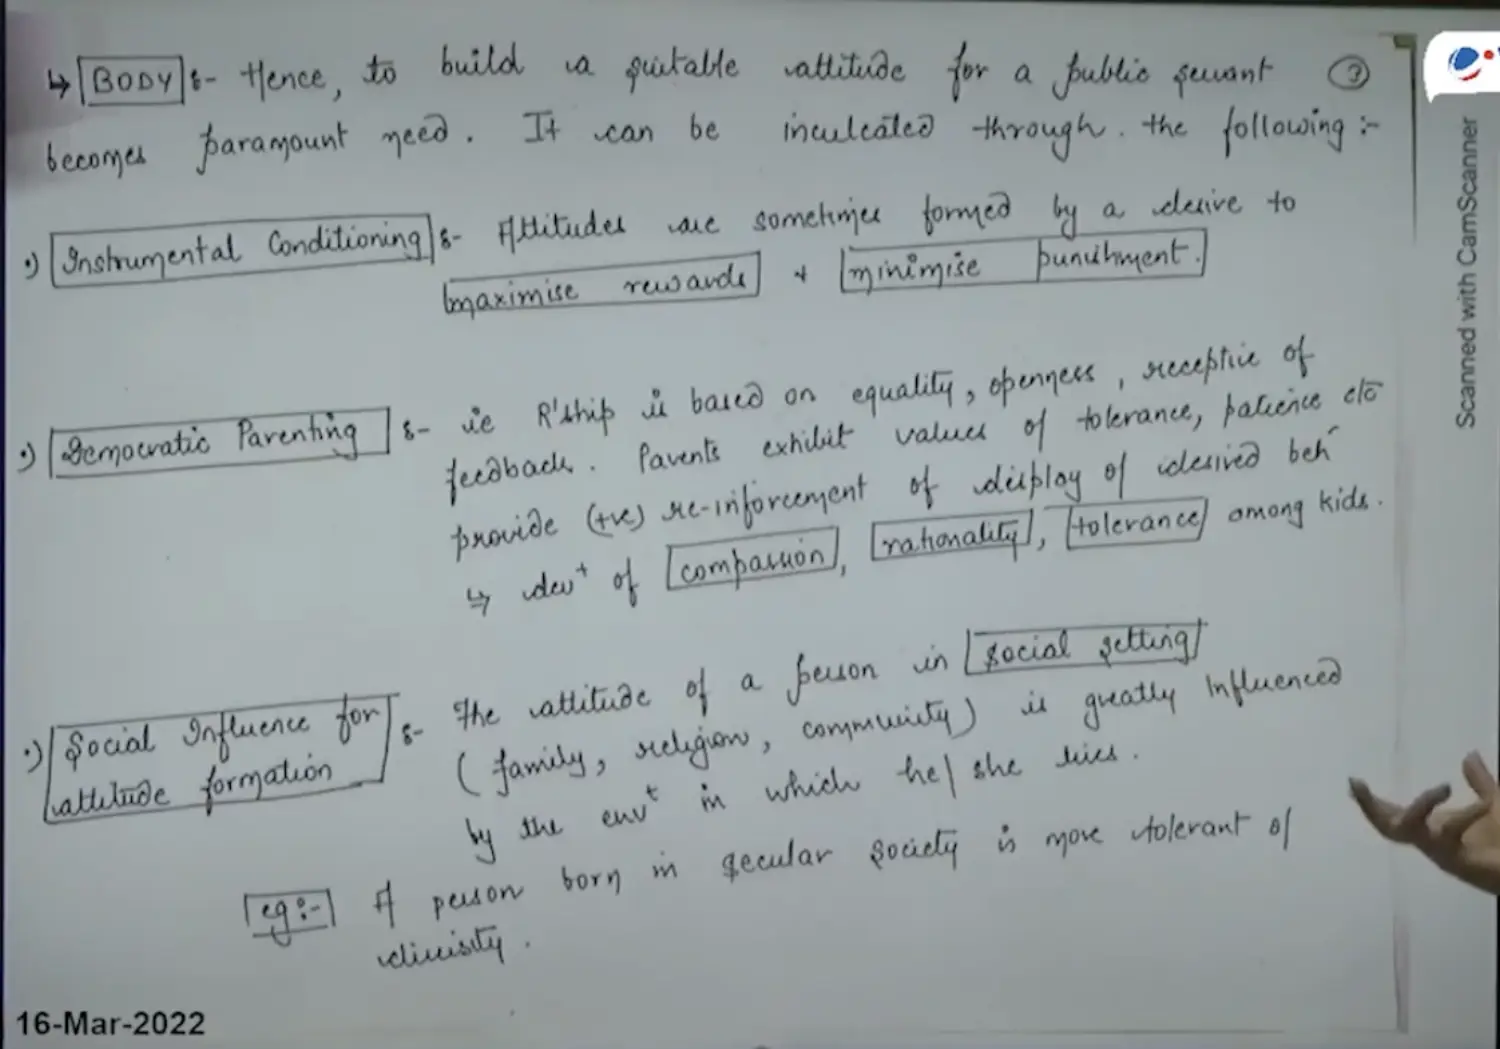 ↳ BODY :- Hence, to build a suitable attitude for a public servant ③
becomes paramount need. It can be inculcated through. the following :-
•) Instrumental Conditioning :- Attitudes are sometimes formed by a desire to
maximise rewards + minimise punishment.
•) Democratic Parenting :- ie R'ship is based on equality, openness, receptive of
feedback. Parents exhibit values of tolerance, patience etc
provide (+ve) re-inforcement of display of desired beh
↳ devt of compassion, rationality, tolerance among kids.
•) Social Influence for
attitude formation :- The attitude of a person in social setting
(family, religion, community) is greatly influenced
by the envt in which he/she lives.
eg:- A person born in secular society is more tolerant of
divisity.
16-Mar-2022
Scanned with CamScanner